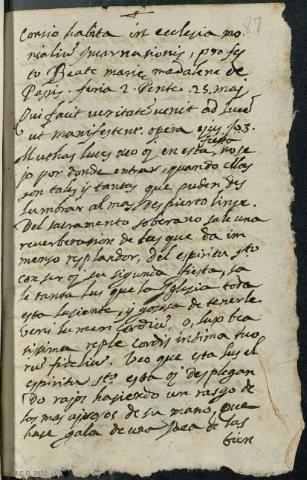 87
Consio habita in ecclesia mo
nialiũ Incarnationis, pro fes
to Beate marie madalene de
Passis. feria 2. Pente. 25. maij
Qui facit veritatẽ venit ad lucẽ
ut manifestent. opera ejus. Jo. 3.
Muchas luces veo oj en esta fiesta, no se
io por donde entrar, quando ellas
son tales y tantas que pueden des
lumbrar al mas despierto linçe.
Del sacramento soberano sale una
reverberasion de lus que da im
menso resplandor, del espiritu sto
con ser oj su sigunda fiesta, sa
le tanta lus que la iglesia toda
esta lusiente, y gososa de tenerle
veni lumen cordiũ, o lux bea
tissima reple cordis intima tuo
rũ fideliũ. Veo que esta lus el
espiritu sto esta oj desplegan
do rajos hasiendo un rasgo de
los mas ajrosos de su mano, que
hase gala de una joea de las
bien